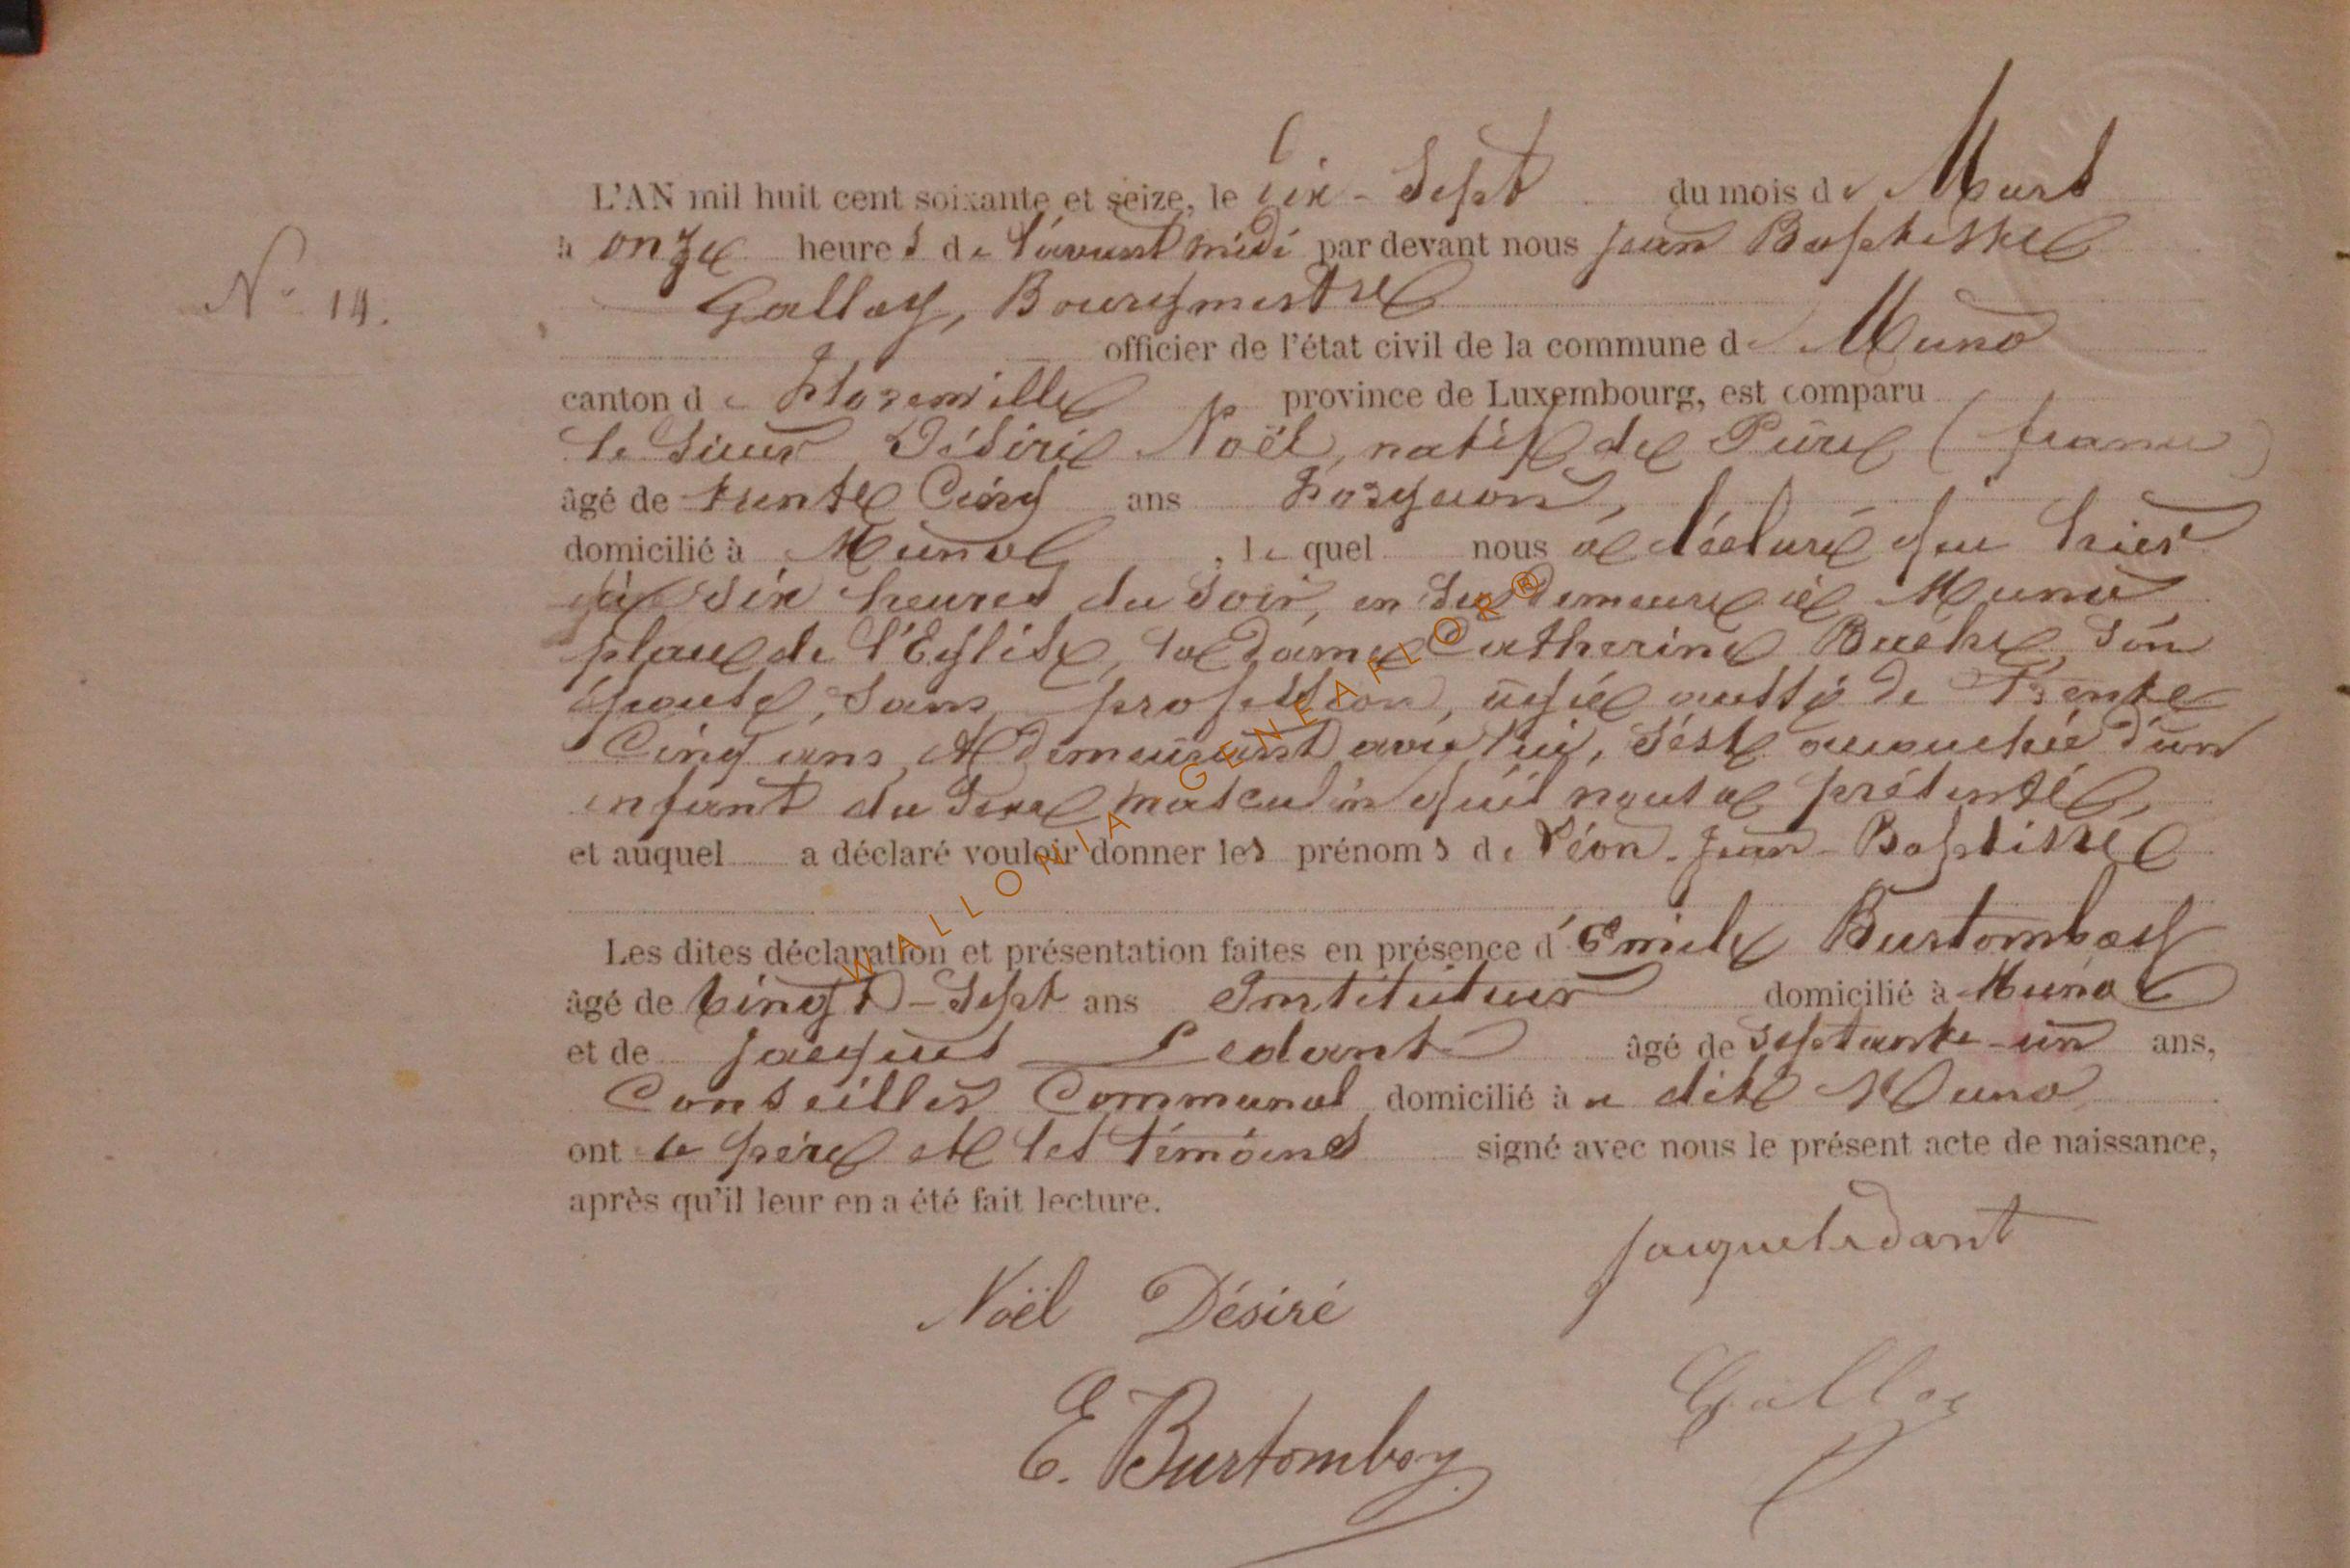 L'AN mil huit cent soixante et seize, le dix-Sept du mois de Mars
N° 14.
à onze heures de l'avant midi par devant nous Jean Baptiste
Galloy, Bourgmestre
officier de l'état civil de la commune de Muno
canton de Florenville province de Luxembourg, est comparu
le Sieur Désiré Noël, natif de Pure (france)
âgé de trente Cinq ans
domicilié à Muno, lequel nous a déclaré que hier
à Six heures du Soir, en Sa demeure à Muno
place de l'Eglise, la Dame Catherine Buche, Son
épouse, Sans profession, agée aussi de Trente
Cinq ans et Demeurant avec lui, S'est accouchée d'un
enfant du Sexe masculin qu'il nous a présenté,
et auquel a déclaré vouloir donner les prénoms de Léon-Jean-Baptiste
Les dites déclaration et présentation faites en présence d'Emile Burtomboy
âgé de vingt-Sept ans Instituteur domicilié à Muno
et de Jacques Ledant âgé de Septante-un ans,
Conseiller Communal domicilié à u dit Muno
ont le père et les témoins signé avec nous le présent acte de naissance,
après qu'il leur en a été fait lecture.
Jacque ledant
Noël Désiré
Galloy
E. Burtomboy
WALLONIA GENEAFLOR®